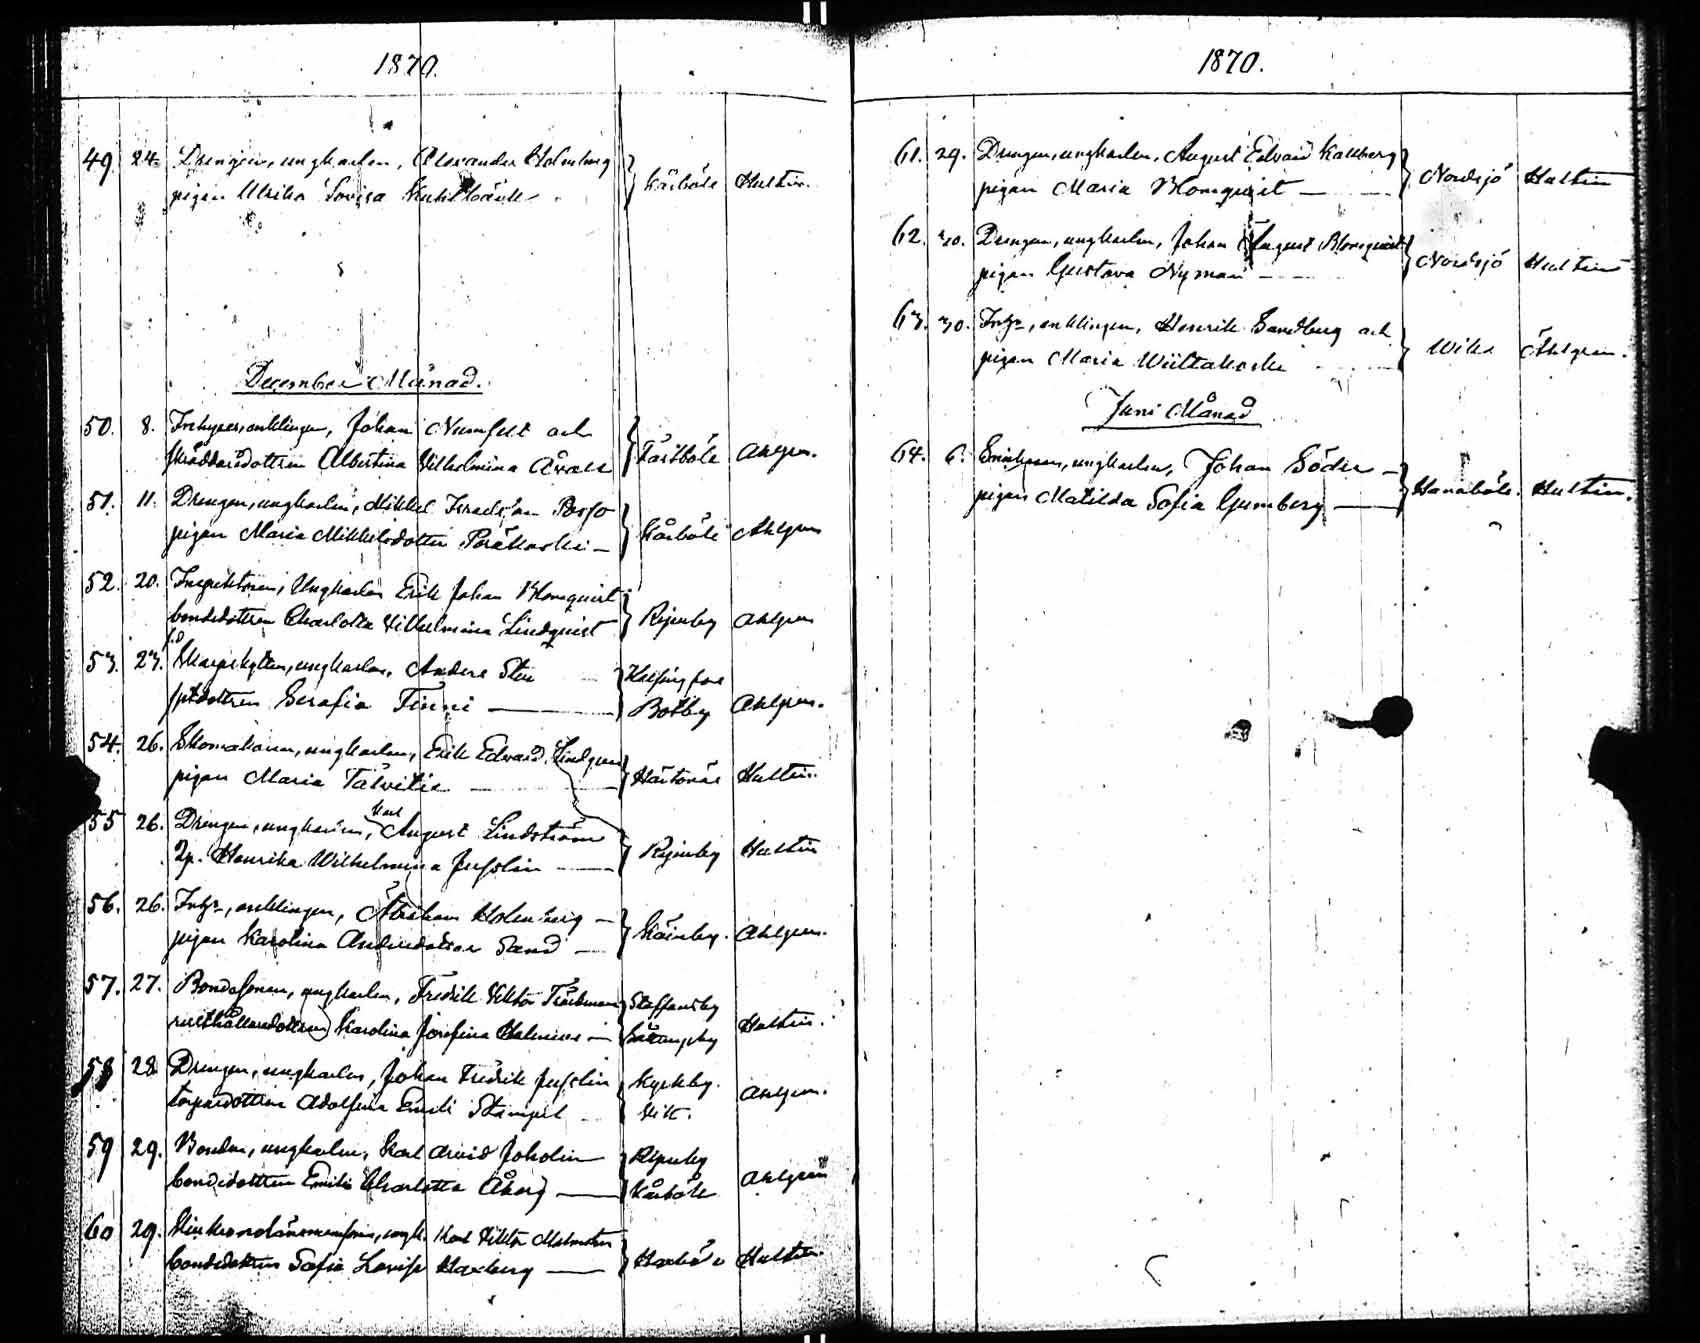 1870.
49. 24. Drengen, ungkarlen, Alexander Holmberg
pigan Ulrika Lovisa
Kårböle Hultin.
December Månad.
50. 8. Inhyses, enklingen, Johan Numfelt och
skräddaredottren Albertina Vilhelmina
Tastböle Ahlgren.
51. 11. Drengen, ungkarlen, Mikkel Israelsson Posso
pigan Maria Mikkelsdotter Peräkoski —
Kårböle Ahlgren
52. 20. Inspektoren, Ungkarlen Erik Johan Blomquist
bondedottren Charlotta Vilhelmina Lindquist
Ahlgren
53. 23. Skarpskytten, ungkarlen, Anders Sten
dottren Serafia Finni —
Helsingfors
Botby Ahlgren.
54. 26. Skomakaren, ungkarlen, Erik Edvard Lindgren
pigan Maria Talvitie —
Hertonäs Hultin.
55 26. Drengen, ungkarlen, Karl August Lindström
Henrika Wilhelmina Jusslin —
Hultin
56. 26. Inhs, enklingen, Abraham Holmberg —
pigan Karolina Andersdotter Sand —
Ahlgren.
57. 27. Bondesonen, ungkarlen, Fredrik Viktor
rusthållaredottren Karolina Josefina —
Staffansby
Hultin.
58 28 Drengen, ungkarlen, Johan Fredrik Jusslin
torparedottren Adolfina Emeli Stampel
Kyrkby.
Vik.
Ahlgren.
59 29. Bonden, ungkarlen, Karl Arvid Joholin
bondedottren Emilie Charlotta Åberg —
Kårböle
Ahlgren
60 29. ungk. Karl Viktor Malmsten
bondedottren Sofia Lovisa Haxberg —
Hultin
1870.
61. 29. Drengen, ungkarlen, August Edvard Kallberg
pigan Maria Blomqvist —
Nordsjö Hultin
62. 30. Drengen, ungkarlen, Johan August Blomqvist
pigan Gustava Nyman —
Nordsjö Hultin
63. 30. Inhs, enklingen, Henrik Sandberg och
pigan Maria Wiiltakoski
Wik Ahlgren.
Juni Månad
64. 6. ungkarlen, Johan Söder —
pigan Matilda Sofia Gumberg —
Hanaböle. Hultin.